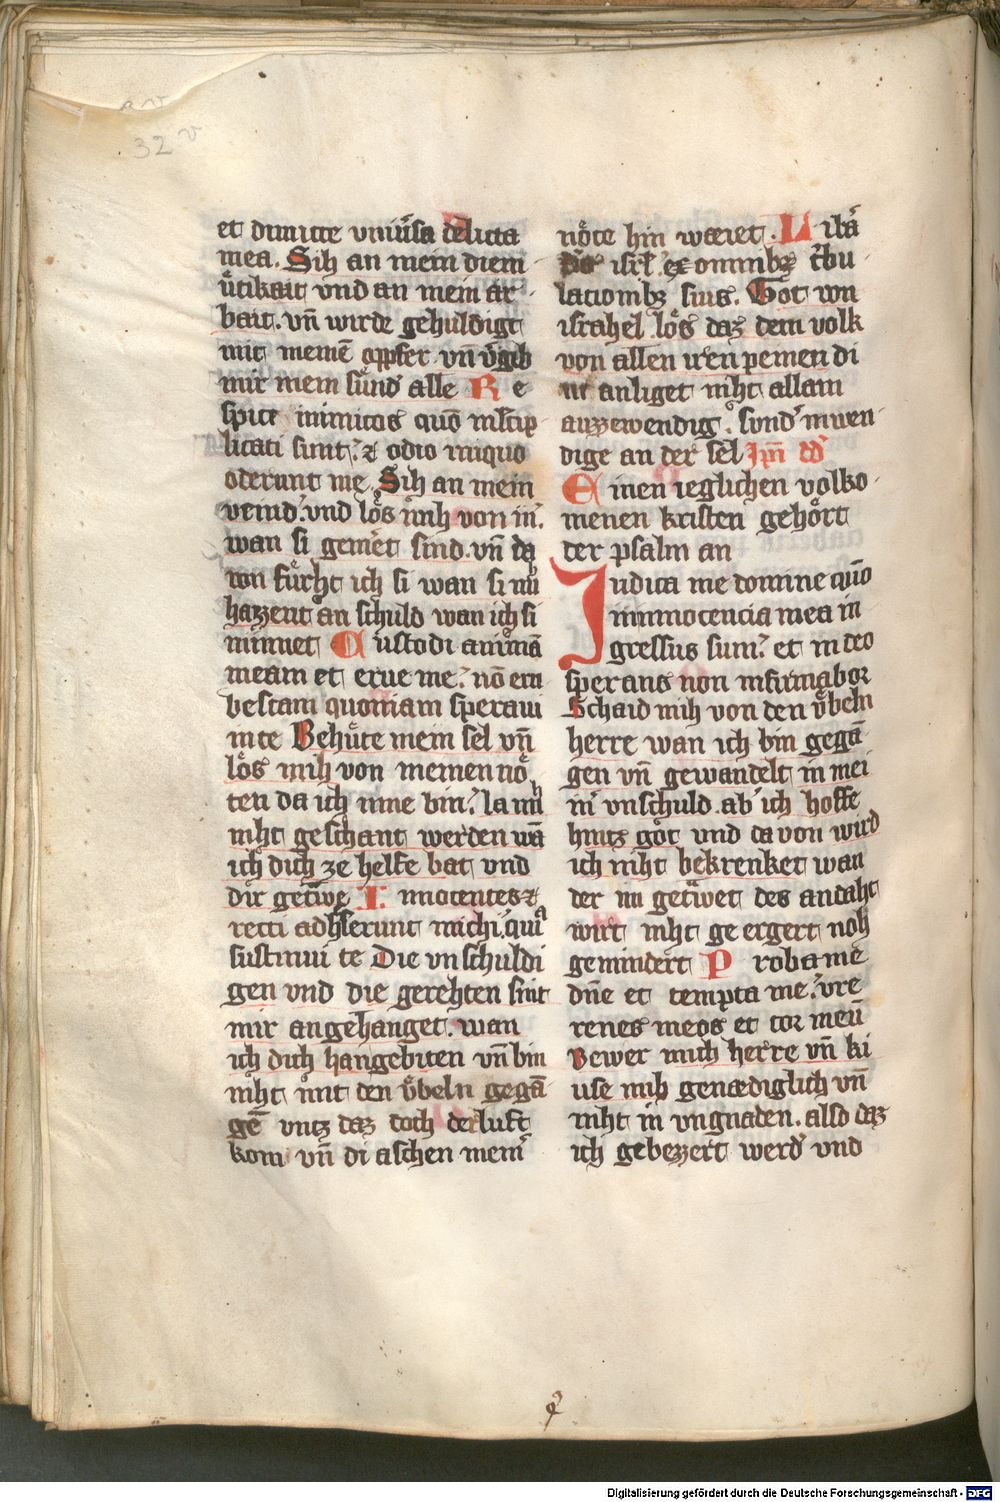 32 v
et dimitte vniũsa delicta
mea. Sih an mein diem
uͤtikait vnd an mein ar
bait. vn̄ wirde gehuldigt
mit meinē opfer vn̄ v̾gib
mir mein suͤnd̾ alle Re
spice inimicos quō
licati sunt. ⁊ odio iniquo
oderunt me. Sih an mein
veind. vnd loͤs mih von in̾.
wan si gemeret sind. vn̄ da
von fuͤrht ich si wan si
hazzent an schuld wan ich si
minnet Custodi animā
meam et erue me. nō eru
bescam quoniam speraui
in te Behuͤte mein sel vn̄
loͤs mih von meinen noͤ
ten da ich inne bin. la mih
niht geschant werden wā
ich dich ze helfe bat vnd
dir
Innocentes ⁊
recti adheserunt michi, quia
sustinui te Die vnschuldi
gen vnd die gerehten sint
mir angehanget. wan
ich dich han gebiten vn̄ bin
niht mit den v̾beln gegā
gē vntz daz doch der luft
kom vn̄ di aschen mein̾
noͤte hin wæiet. Lib̾a
isr̄l ex omnibꝫ t̾bu
lacionibꝫ suis. Got von
israhel loͤs daz dem volk
von allen iren peinen di
in anliget niht allain
auzzewendig. sund̾ inwen
dige an der sel
Einen ieglichen volko
menen kristen gehoͤrt
der psalm an
Iudica me domine quō
in innocencia mea in
gressus sum. et in deo
sperans non infirmabor
Schaid mih von den v̾beln
herre wan ich bin gegā
gen vn̄ gewandelt in mei
in̾ vnschuld. ab̾ ich hoffe
hintz got vnd da von wird
ich niht bekrenket wan
der im getriwet des andaht
wirt niht ge ergert noh
gemindert Proba me
dn̄e et tempta me. vre
renes meos et cor meū
Bewer mich herre vn̄ ki
use mih genædiglich vn̄
niht in vngnaden. also daz
ich gebezzert werd̾ vnd
Digitalisierung gefördert durch die Deutsche Forschungsgemeinschaft - DFG